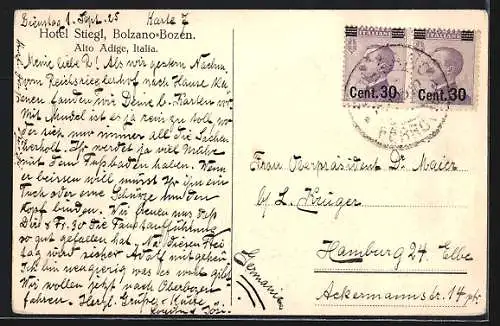 Dienstag 1. Sept. 25 Karte 7
Hotel Stiegl, Bolzano-Bozen.
Alto Adige, Italia.
Meine liebe ! Als wir gestern Nachm.
vom Reichsriegelerhof nach Hause ka-
men fanden wir Deine l. Karten vor.
Mit Mudel ist es ja
der sich nur immer all die Sachen
überholt. Ihr werdet ja viel Mühe
mit dem haben. Wenn
er beissen will müsst Ihr ihm ein
Tuch oder eine Schürze um den
Kopf binden. Wir freuen uns dass
Dir d. Fr. 90 die Faustaufführung
so gut gefallen hat. Na, diesen Frei
tag wird sicher Adolf mitgehen.
Ich bin neugierig was es wohl gibt.
Wir wollen jetzt nach Oberbozen
fahren. Herzl. Grüsse + Küsse
ITALIANE
Cent. 30
ITALIANE
Cent. 30
Frau Oberpräsident Dr. Maier
bf. L. Krüger
Hamburg 24. Elbe
Ackermannstr. 14 ptr
Germania